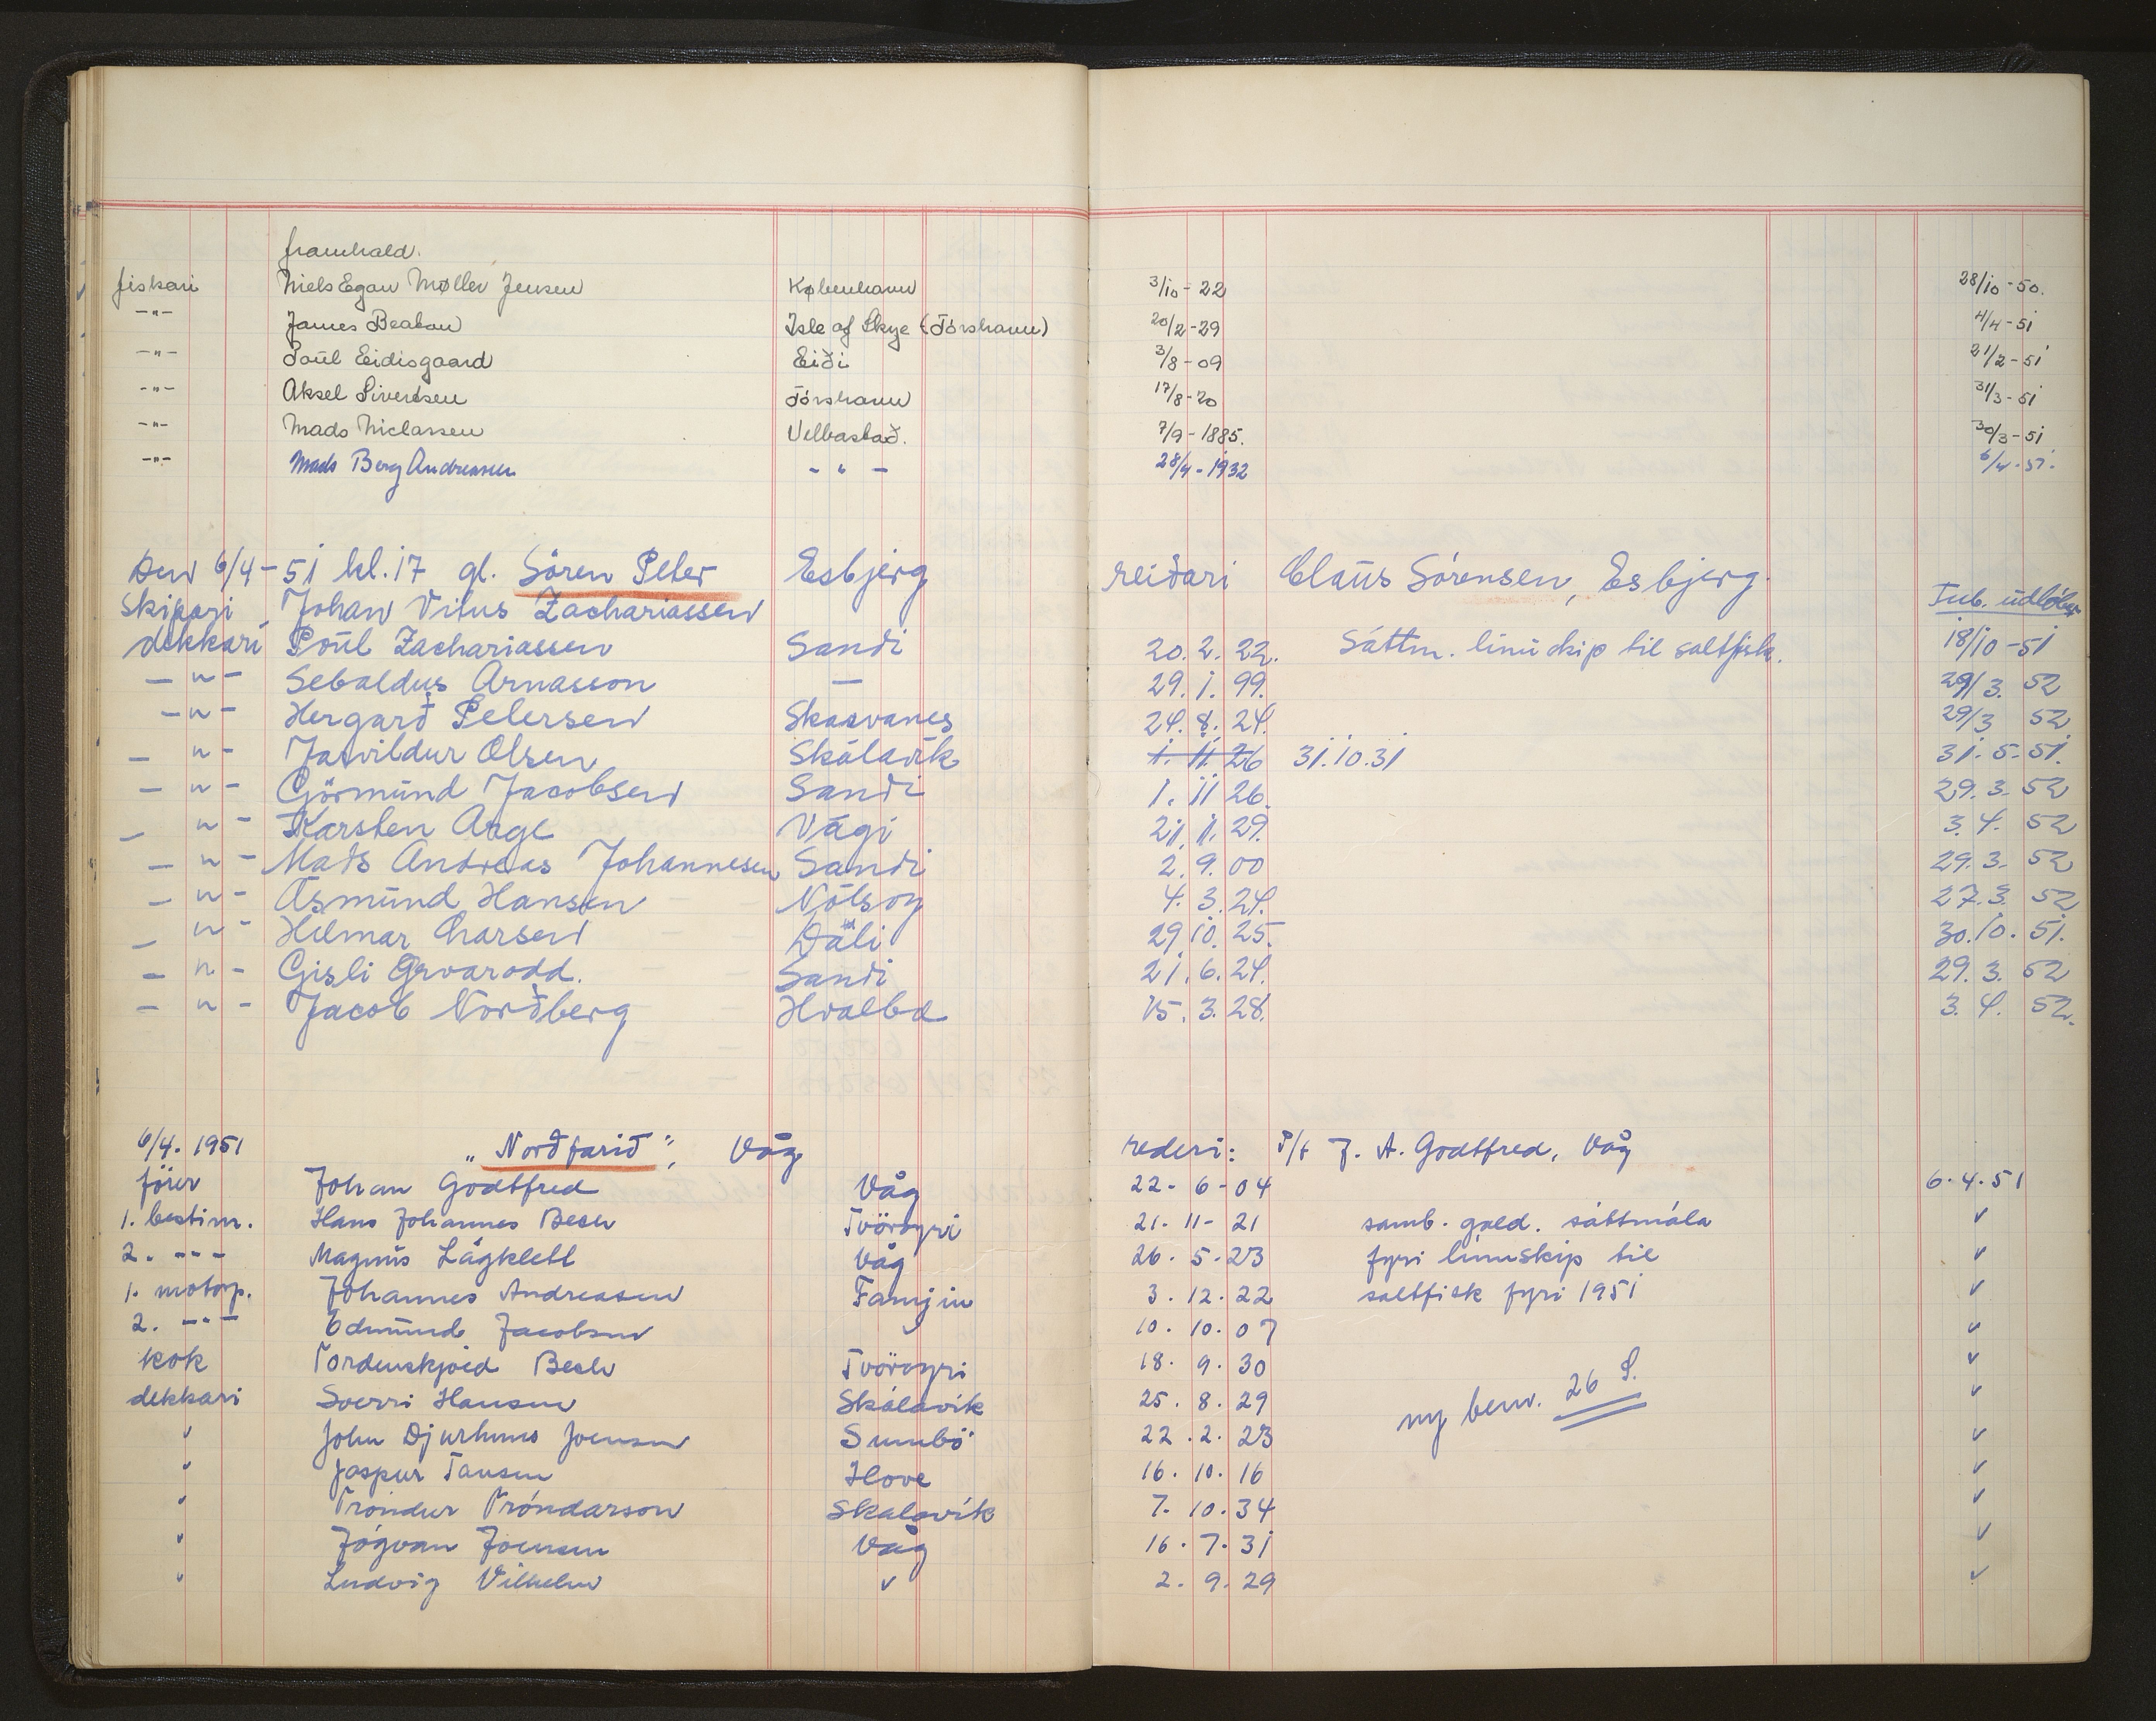 framhald.
fiskari Niels Egan Møller Jensen København 3/10-22 28/10-50.
-"- James Beaton Isle of Skye (Tórshavn) 20/2-29 4/4-51
-"- Poul Eidisgaard Eiði 3/8-09 21/2-51
-"- Aksel Sivertsen Tórshavn 17/8-20 31/3-51
-"- Mads Niclassen Velbastað. 7/9-1885. 30/3-51
-"- Mads Berg Andreasen - " - 28/4-1932 6/4-51.
Den 6/4-51 kl. 17 gl. Sören Peter Esbjerg reiðari Claus Sórensen, Esbjerg.
Skipari Johan Vitus Zachariassen Tub. udløber
dekkari Poul Zachariassen Sandi 20. 2. 22. Sáttm. línuskip til saltfisk. 18/10-51
-"- Sebaldus Arnasson — 29. 1. 99. 29/3. 52
-"- Hergarð Petersen Skarvanes 24. 8. 24. 29/3 52
-"- Jatvildur Olsen Skálavík 1. 11. 26 31.10.31 31. 5. 51.
-"- Görmund Jacobsen Sandi 1. 11 26. 29. 3. 52
-"- Karsten Arge Vági 21. 11. 29. 3. 4. 52
-"- Mads Andreas Johannesen Sandi 2. 9. 00 29. 3. 52
-"- Ásmund Hansen Nólsoy 4. 3. 24. 27. 3. 52
-"- Hilmar Larsen Dali 29 10. 25. 30. 10. 51.
-"- Gisli Sandi 21. 6. 24. 29. 3. 52
-"- Jacob Norðberg Hvalba 15. 3. 28. 3. 4. 52.
6/4. 1951 „Norðfarið", Våg rederi: P/f J. A. Godtfred, Våg
fører Johan Godtfred Våg 22- 6-04 6.4.51
1. bestm. Hans Johannes Bech Tvöroyri 21. 11- 21 samb. gæld. sáttmála "
2. --- Magnus Lágklett Våg 26. 5.23 fyri línuskip til "
1. motorp. Johannes Andreasen Famjin 3. 12. 22 saltfisk fyri 1951 "
2. --- Edmund Jacobsen 10. 10. 07 "
kok Tordenskjold Bech Tvöroyri 18. 9. 30 "
dekkari Sverri Hansen Skálavík 25. 8. 29 ny bem. 26 S. "
" John Djurhuus Joensen Sumbö 22. 2. 23 "
" Jaspur Tausen Hove 16. 10. 16 "
" Tróndur Tróndarson Skalavík 7. 10. 34 "
" Jógvan Joensen Våg 16. 7. 31 "
" Ludvig Vilhelm " 2. 9. 29 "